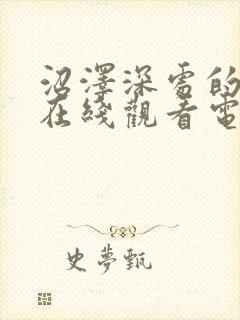 沼澤深雪的
在綫觀看電
史夢甄